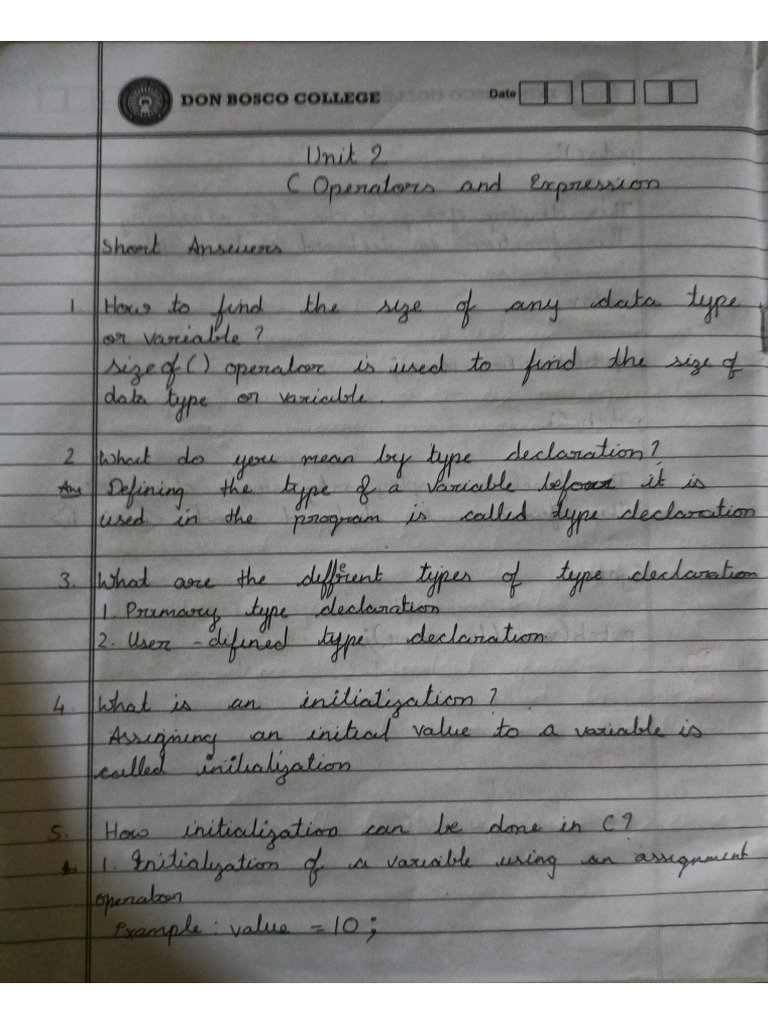 DON BOSCO COLLEGE Date
Unit 2
C Operators and Expression
Short Answers
1 How to find the size of any data type
or variable?
sizeof() operator is used to find the size of
data type or variable.
2 What do you mean by type declaration?
Ans Defining the type of a variable before it is
used in the program is called type declaration
3. What are the different types of type declaration
1. Primary type declaration
2. User-defined type declaration
4 What is an initiatization?
Assigning an initial value to a variable is
called initialization
5. How initialization can be done in C?
1. Initialization of a variable using an assignment
operator
Example: value = 10;